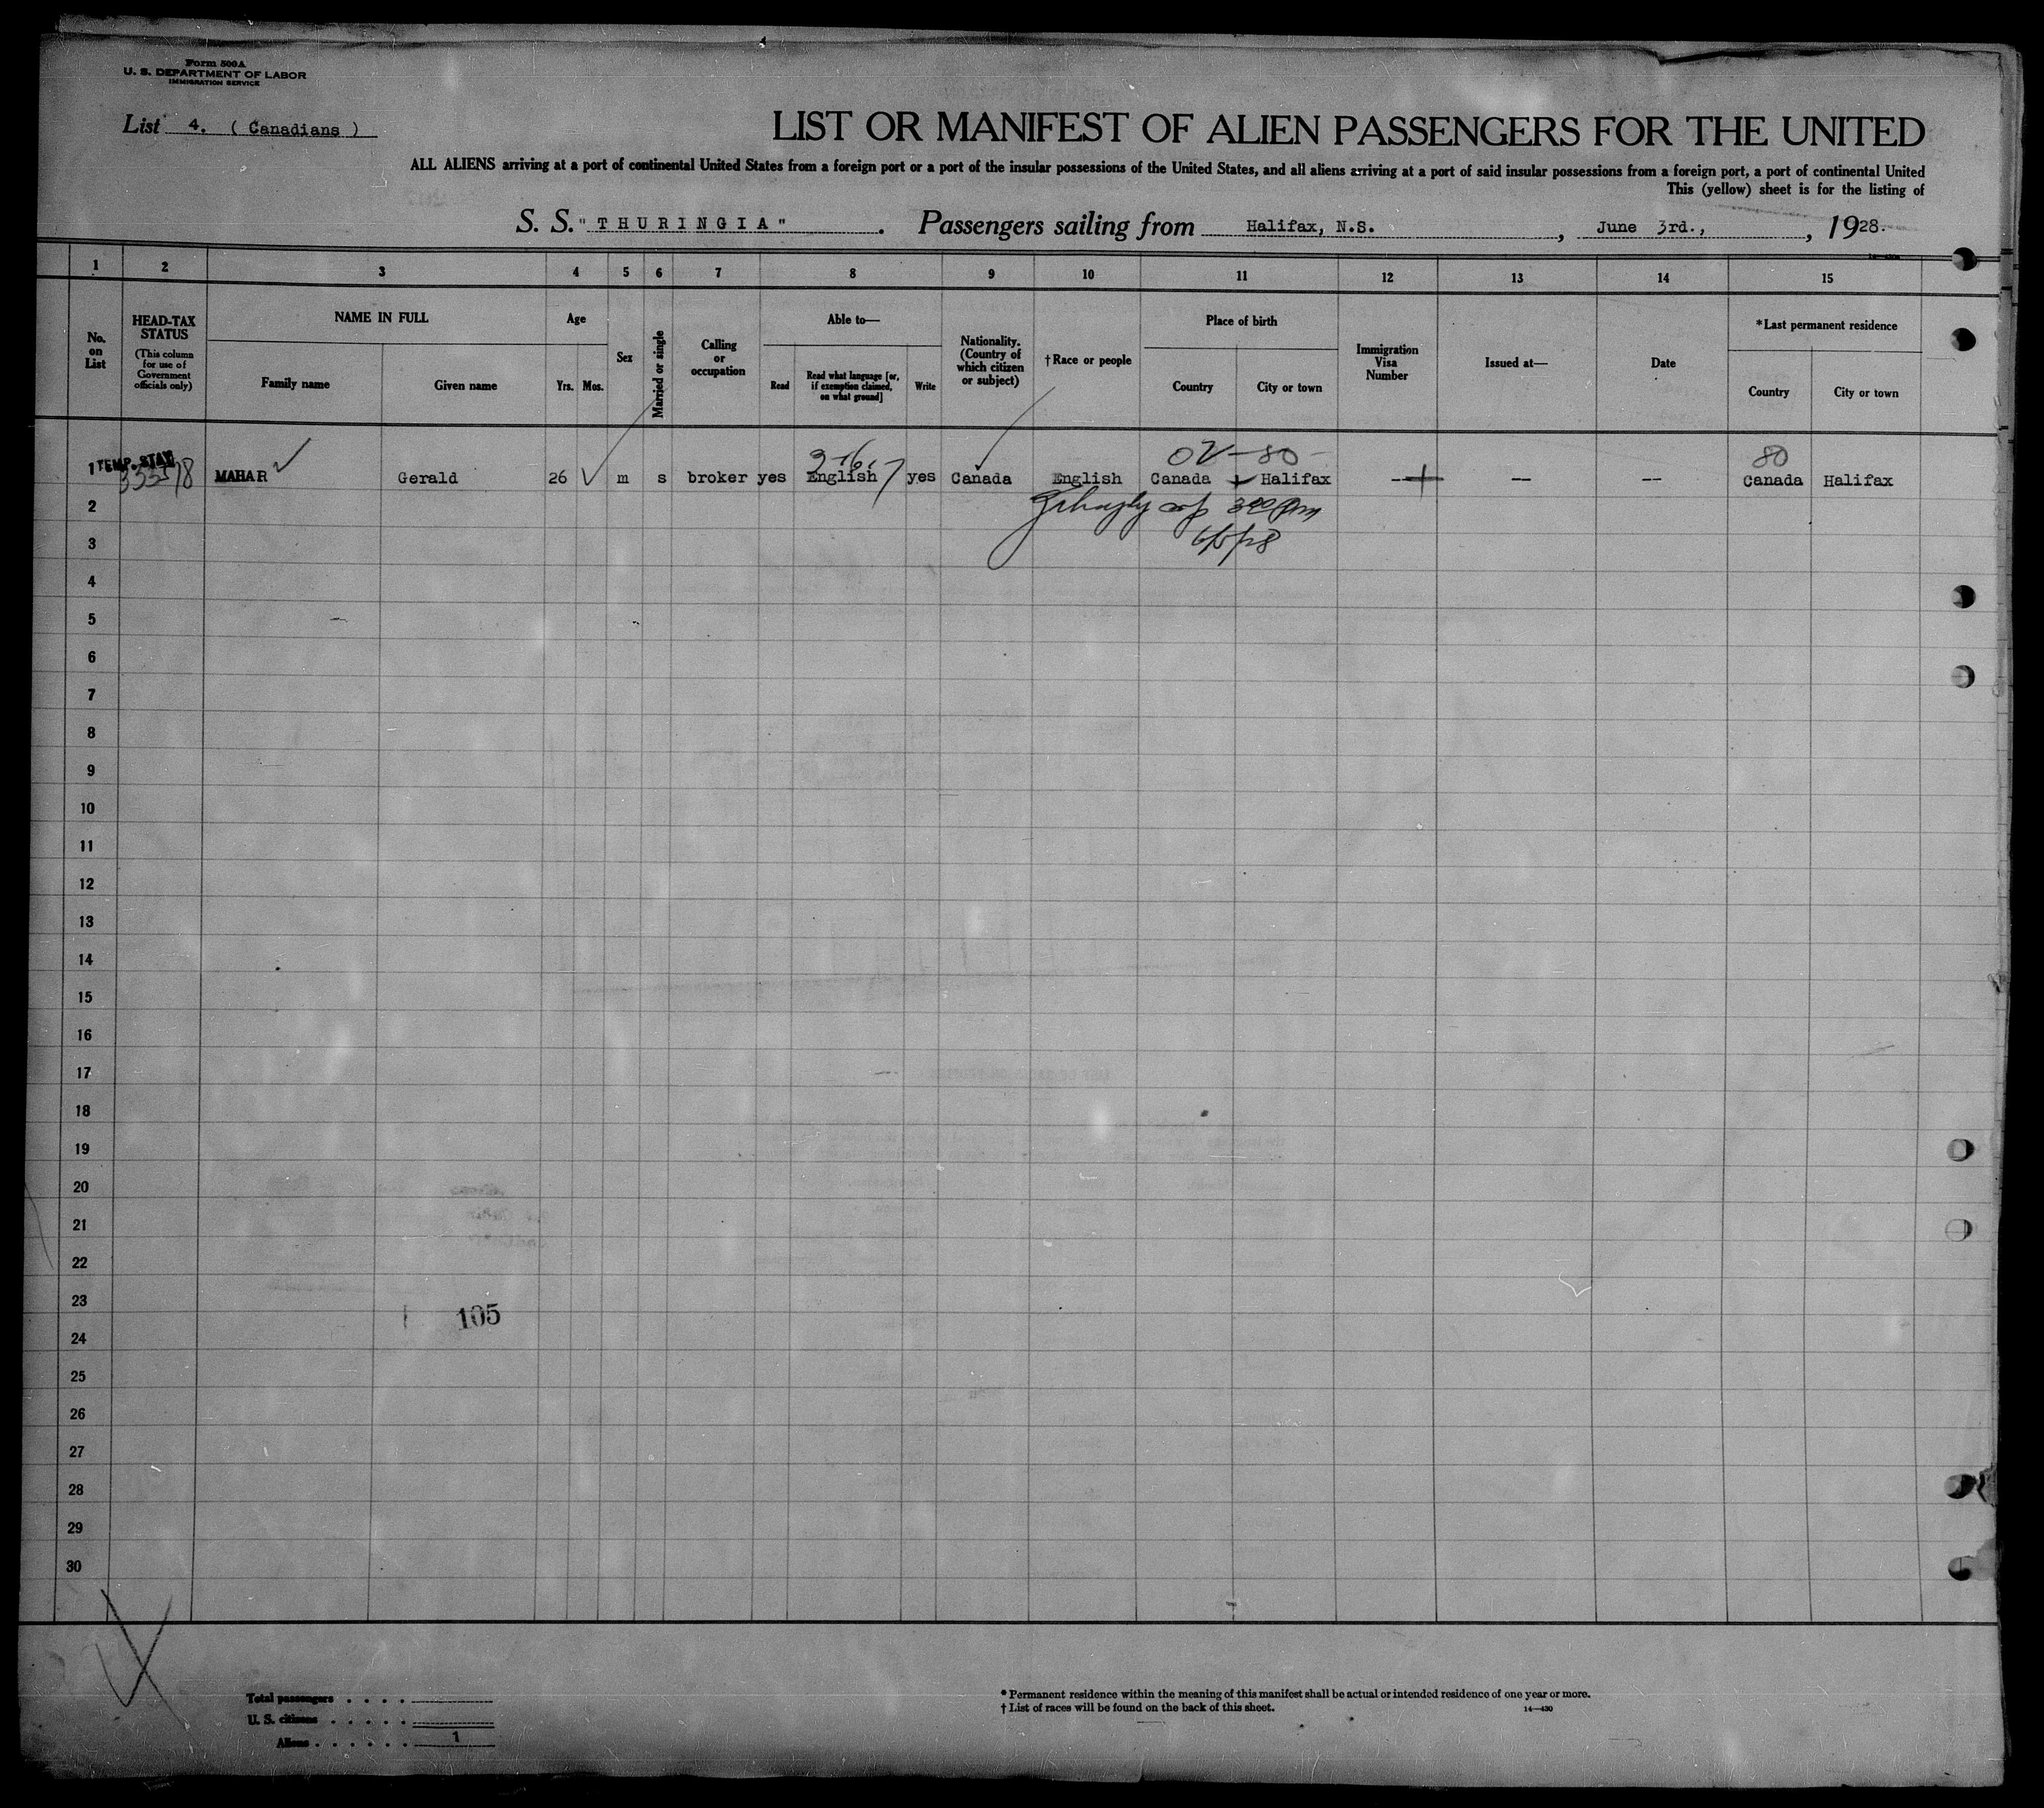 Form 500A
U. S. DEPARTMENT OF LABOR
IMMIGRATION SERVICE
List 4. ( Canadians )
LIST OR MANIFEST OF ALIEN PASSENGERS FOR THE UNITED
ALL ALIENS arriving at a port of continental United States from a foreign port or a port of the insular possessions of the United States, and all aliens arriving at a port of said insular possessions from a foreign port, a port of continental United
This (yellow) sheet is for the listing of
S. S. "THURINGIA". Passengers sailing from Halifax, N.S., June 3rd., , 1928.
1 2 3 4 5 6 7 8 9 10 11 12 13 14 15
No. on List
HEAD-TAX STATUS
(This column for use of Government officials only)
NAME IN FULL
Family name Given name
Age
Yrs. Mos.
Sex
Married or single
Calling or occupation
Able to—
Read
Read what language [or, if exemption claimed, on what ground]
Write
Nationality. (Country of which citizen or subject)
†Race or people
Place of birth
Country City or town
Immigration Visa Number
Issued at—
Date
*Last permanent residence
Country City or town
OV-80- 80
1 TEMP. STAY MAHAR Gerald 26 m s broker yes English yes Canada English Canada Halifax -- -- -- Canada Halifax
2 3 00 pm
3 6/5/28
4
5
6
7
8
9
10
11
12
13
14
15
16
17
18
19
20
21
22
23
105
24
25
26
27
28
29
30
Total passengers . . . .
U. S. citizens . . . . .
Aliens . . . . . . 1
* Permanent residence within the meaning of this manifest shall be actual or intended residence of one year or more.
† List of races will be found on the back of this sheet. 14—430